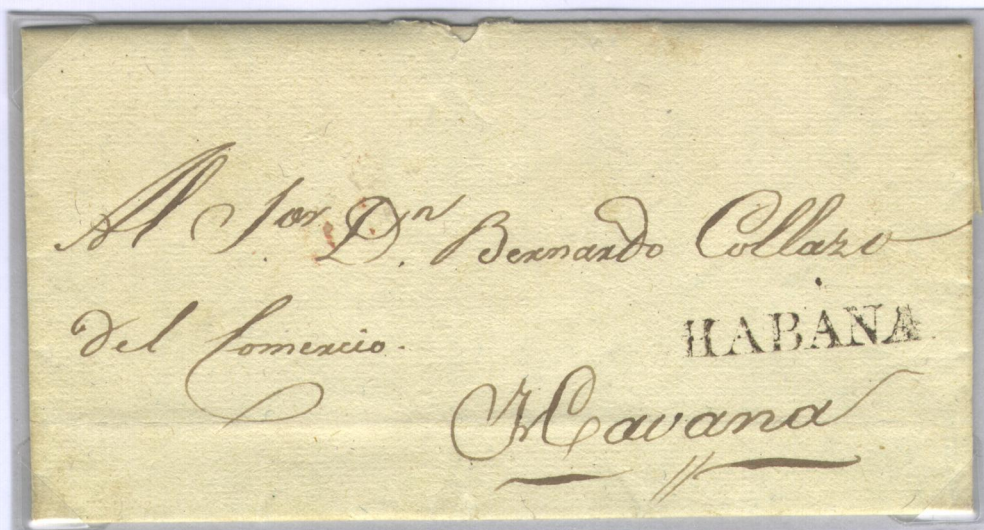 Al Sor. Dn. Bernardo Collazo
del Comercio.
HABANA
Havana